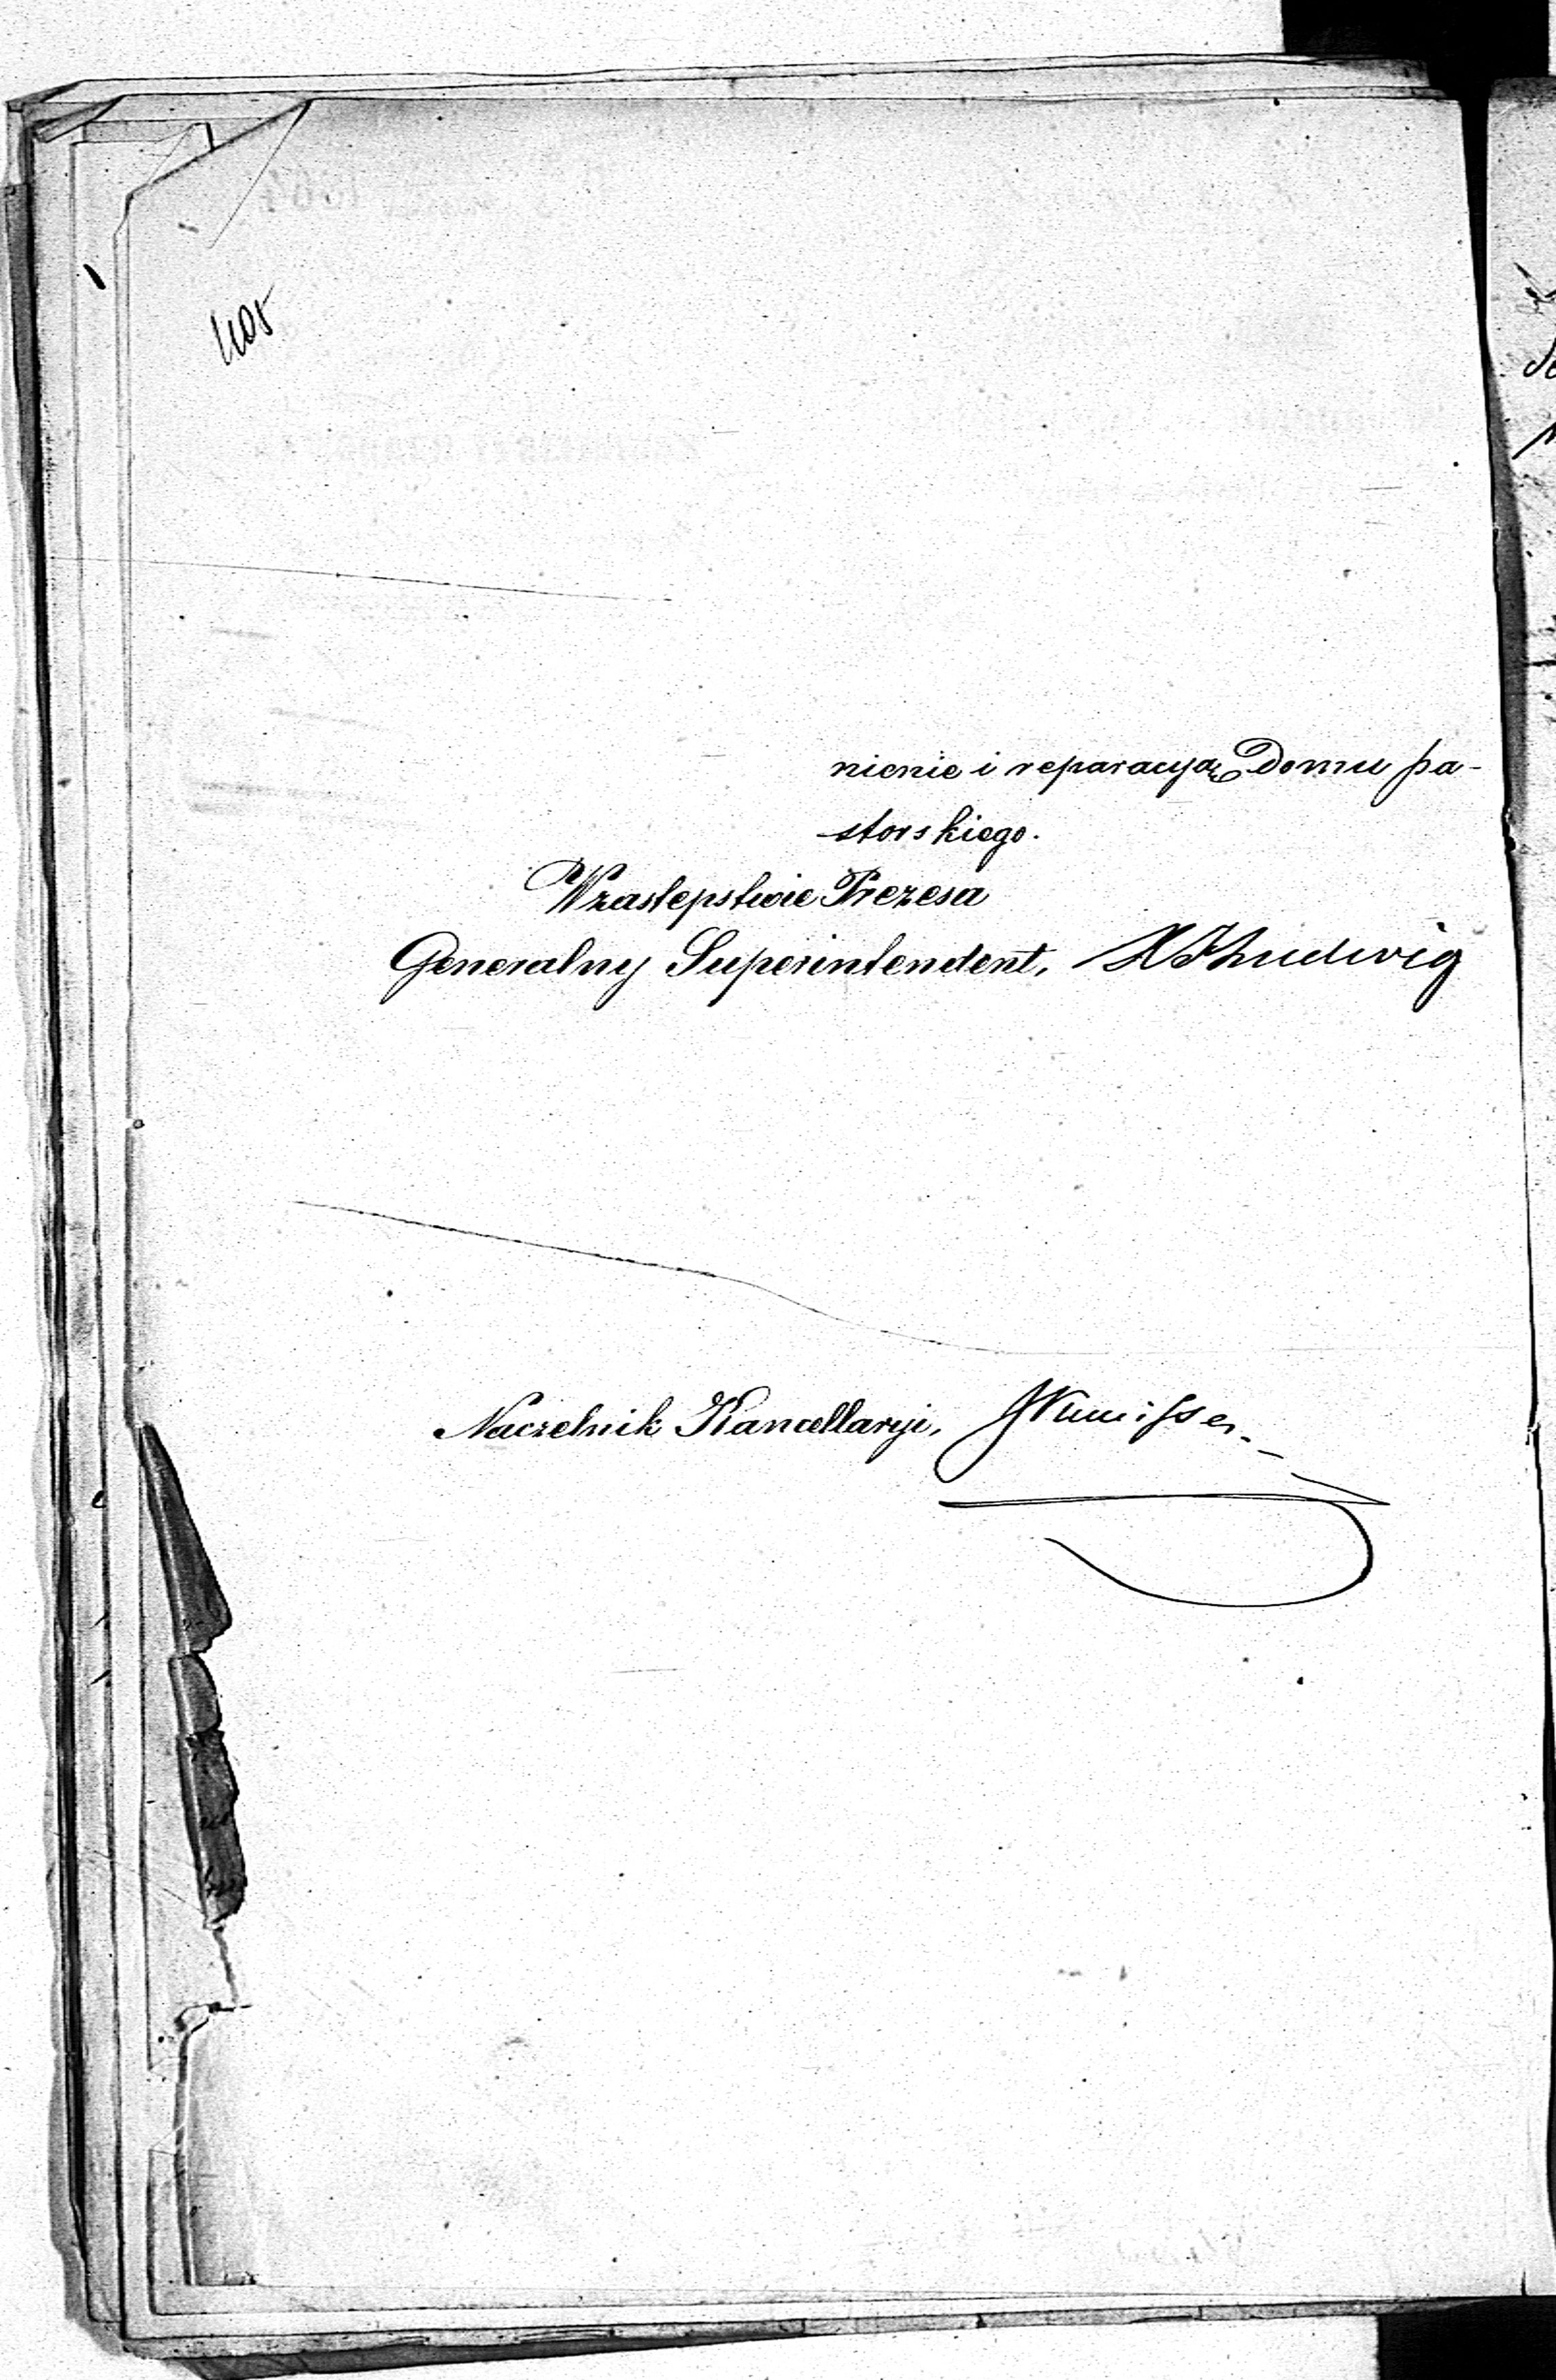 nienie i reparacyą Domu pa-
storskiego.
W zastępstwie Prezesa
Generalny Superintendent, Ludwig
Naczelnik Kancellaryi,